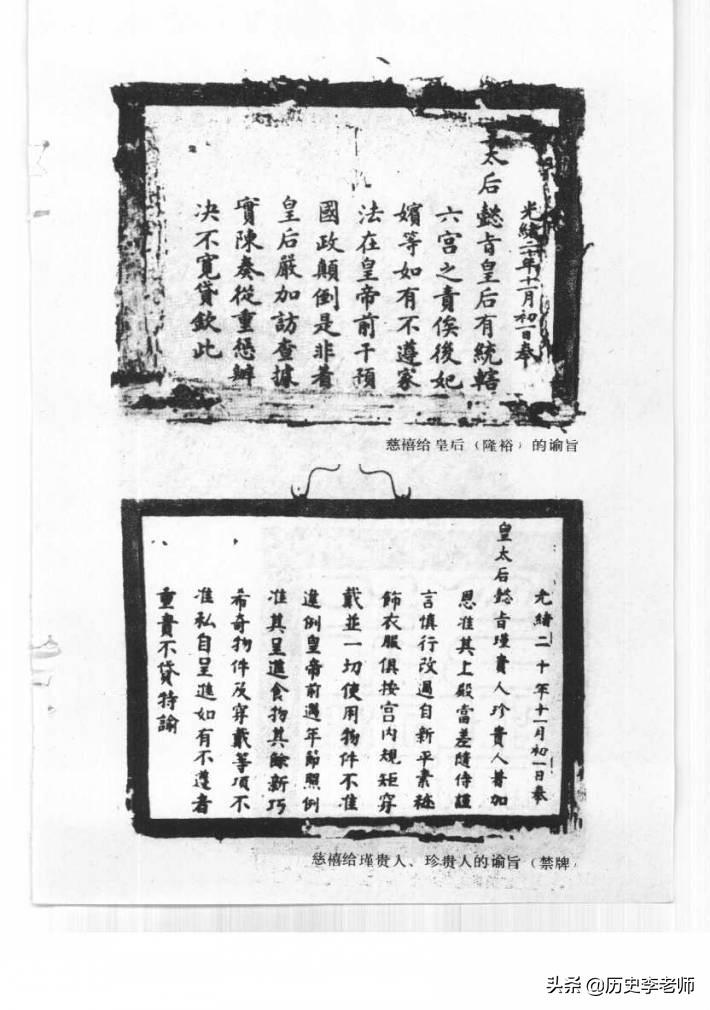 光緒二十年十一月初一日奉
太后懿旨皇后有統轄
六宮之責俟後妃
嬪等如有不遵家
法在皇帝前干預
國政顛倒是非着
皇后嚴加訪查據
實陳奏從重懲辦
决不寬貸欽此
慈禧给皇后（隆裕）的谕旨
光緒二十年十一月初一日奉
皇太后懿旨瑾貴人珍貴人着加
恩准其上殿當差隨侍謹
言慎行改過自新平素粧
飾衣服俱按宮内規矩穿
戴並一切使用物件不准
違例皇帝前遇年節照例
准其呈進食物其餘新巧
希奇物件及穿戴等項不
准私自呈進如有不遵者
重責不貸特諭
慈禧给瑾贵人、珍贵人的谕旨（禁牌
头条 @历史李老师